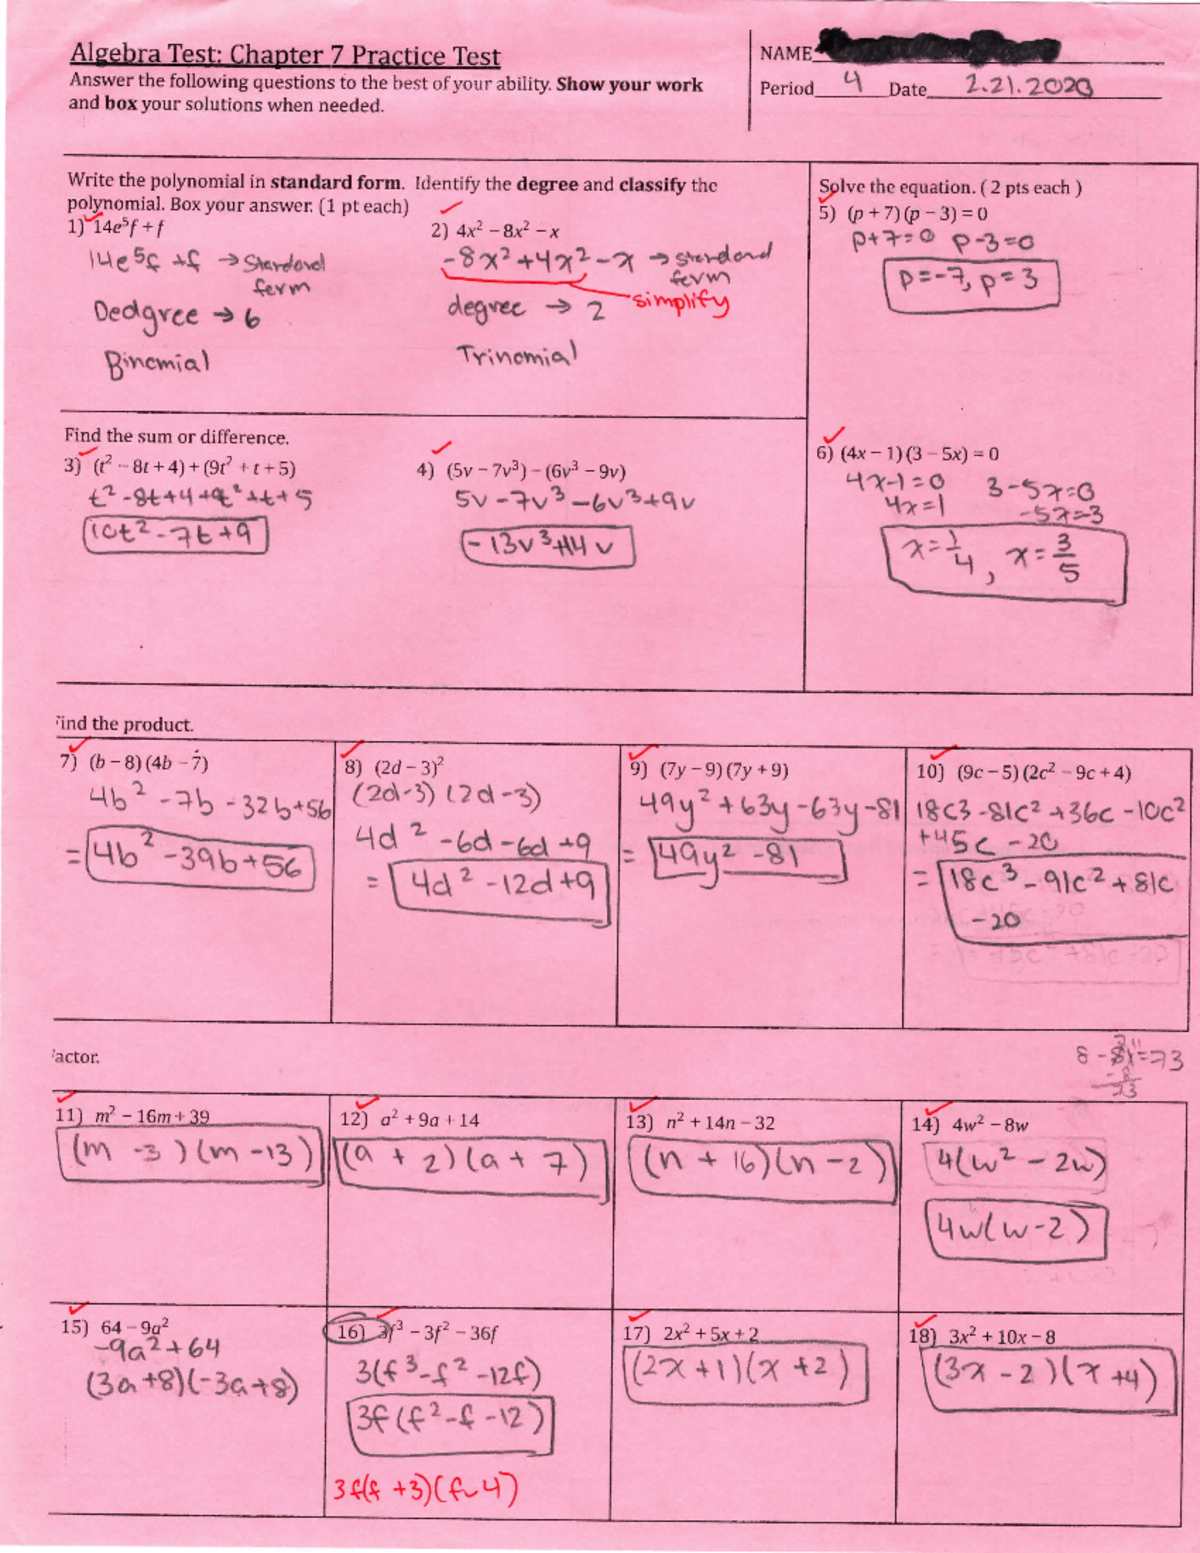 Algebra Test: Chapter 7 Practice Test
Answer the following questions to the best of your ability. Show your work
and box your solutions when needed.
NAME
Period 4 Date 2.21.2020
Write the polynomial in standard form. Identify the degree and classify the
polynomial. Box your answer. (1 pt each)
1) 14e⁵f + f
14e⁵f +f → Standard
form
Dedgree → 6
Binomial
2) 4x² – 8x² – x
-8x²+4x²-x → standard
form
simplify
degree → 2
Trinomial
Solve the equation. ( 2 pts each )
5) (p + 7)(p – 3) = 0
p+7=0 p-3=0
p=-7, p=3
Find the sum or difference.
3) (t² – 8t + 4) + (9t² + t + 5)
t²-8t+4+9t²+t+5
10t²-7t+9
4) (5v – 7v³) – (6v³ – 9v)
5v-7v³-6v³+9v
-13v³+14v
6) (4x – 1)(3 – 5x) = 0
4x-1=0 3-5x=0
4x=1 -5x=-3
x=1/4, x=3/5
Find the product.
7) (b – 8)(4b – 7)
4b²-7b-32b+56
= 4b²-39b+56
8) (2d – 3)²
(2d-3)(2d-3)
4d²-6d-6d+9
= 4d²-12d+9
9) (7y – 9)(7y + 9)
49y²+63y-63y-81
= 49y²-81
10) (9c – 5)(2c² – 9c + 4)
18c3-81c²+36c-10c²
+45c-20
= 18c³-91c²+81c
-20
actor.
11) m² – 16m + 39
(m -3)(m-13)
12) a² + 9a + 14
(a + 2)(a + 7)
13) n² + 14n – 32
(n + 16)(n-2)
14) 4w² – 8w
4(w²-2w)
4w(w-2)
15) 64 – 9a²
-9a²+64
(3a+8)(-3a+8)
16) 3f³ – 3f² – 36f
3(f³-f²-12f)
3f(f²-f-12)
3f(f+3)(f-4)
17) 2x² + 5x + 2
(2x+1)(x+2)
18) 3x² + 10x – 8
(3x-2)(x+4)